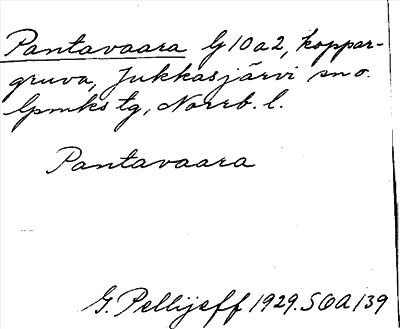 Pantavaara G10a2, koppar-
gruva, Jukkasjärvi sn o.
lpmks tg, Norrb. l.
Pantavaara
G. Pellijeff 1929. SOA 139